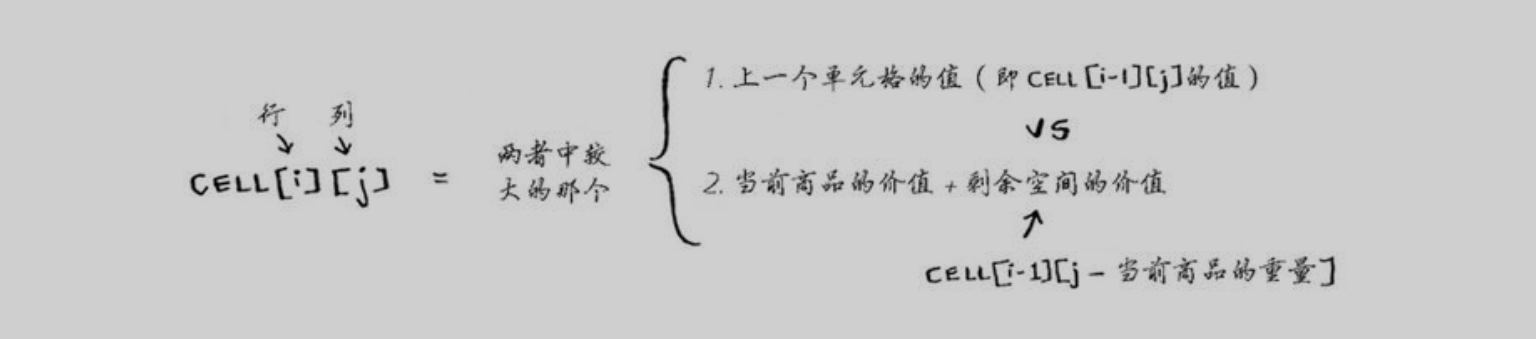 行 列
CELL[i][j] = 两者中较大的那个
1. 上一个单元格的值（即CELL[i-1][j]的值）
VS
2. 当前商品的价值 + 剩余空间的价值
CELL[i-1][j - 当前商品的重量]